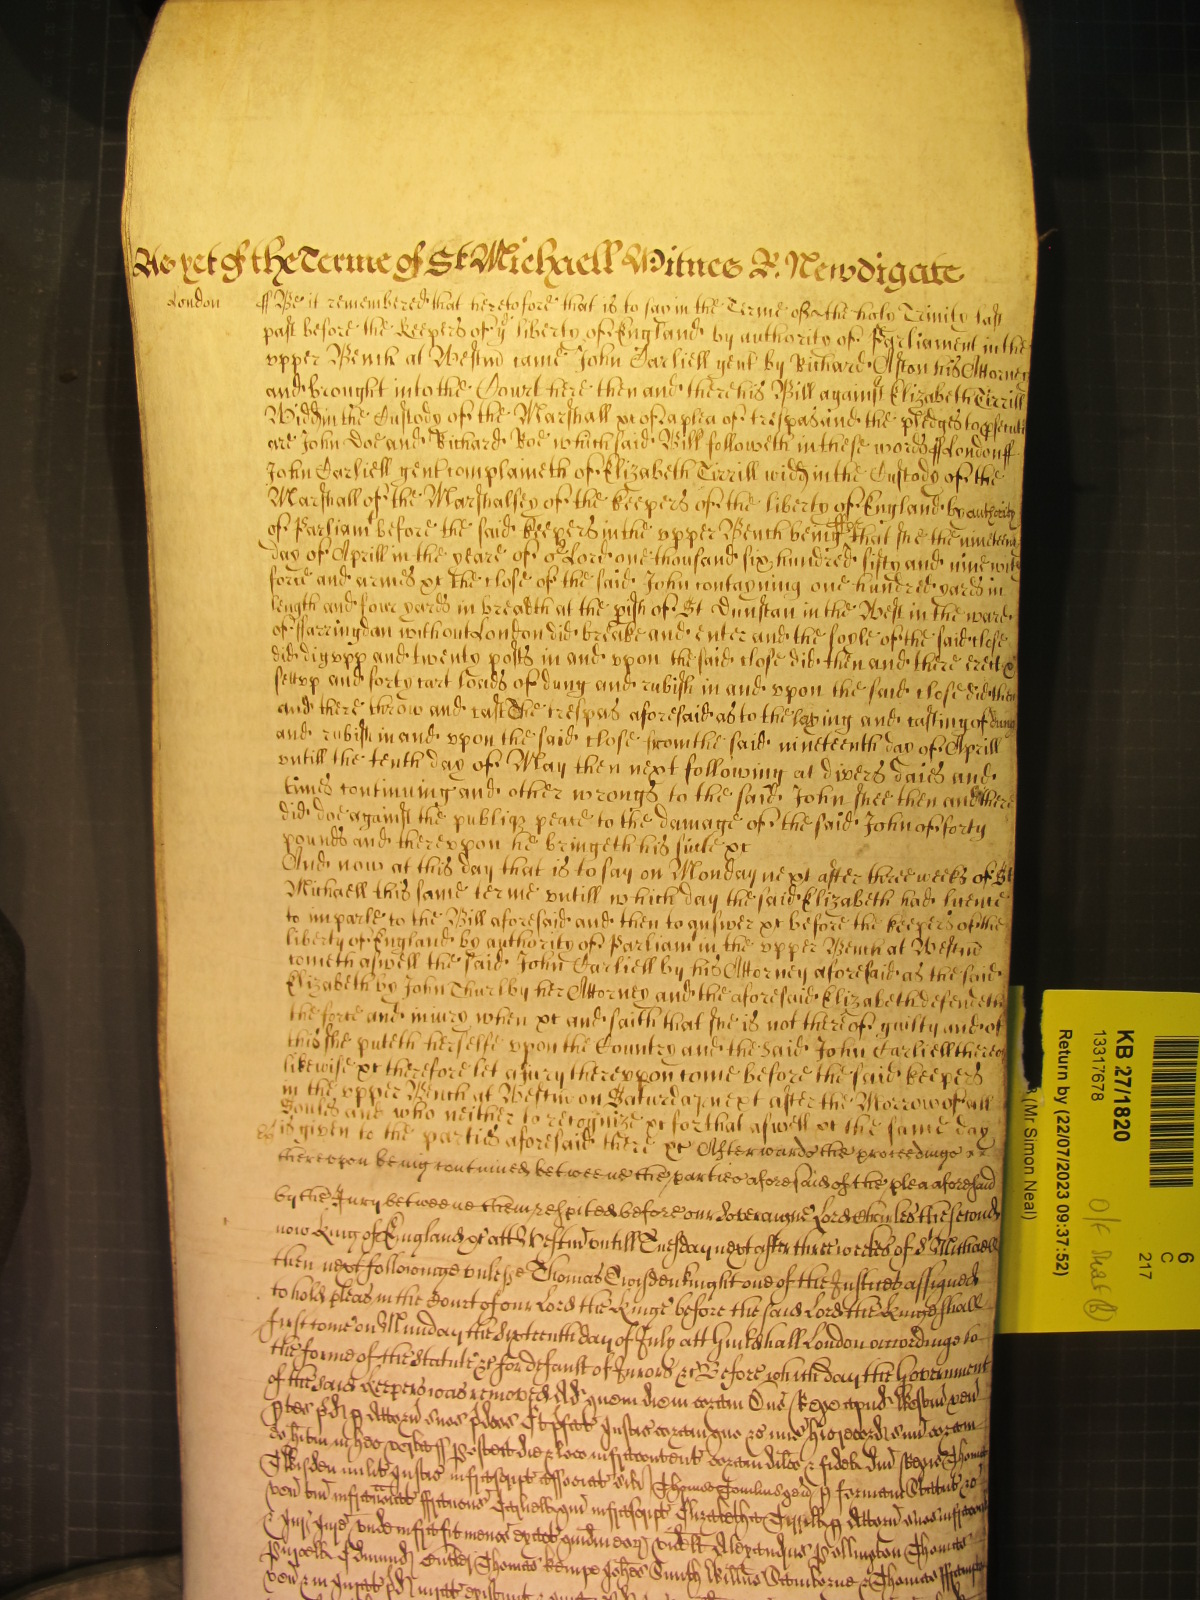 As yet of the Terme of St Michaell Witnes R. Newdigate
London
ff Be it remembered that heretofore that is to say in the Terme of the holy Trinity last
past before the Keepers of ye liberty of England by authority of Parliament in the
vpper Bench at Westm̄ came John Carliell gent by Richard Aston his Attorney
and brought into the Court here then and there his Bill against Elizabeth Tirrill
Widd in the Custody of the Marshall xc of a plea of trespas and the pledges to psecute
are John Doe and Richard Roe which said Bill followeth in these words ff London ff
John Carliell gent complaineth of Elizabeth Tirrill widd in the Custody of the
Marshall of the Marshalsey of the keepers of the liberty of England by authority
of Parliamt before the said keepers in the vpper Bench being ffor that she the nineteenth
day of Aprill in the yeare of or Lord one thousand six hundred fifty and nine with
force and armes xc the close of the said John contayning one hundred yards in
length and fower yards in breadth at the pish of St Dunstan in the West in the ward
of ffarringdan without London did breake and enter and the soyle of the said close
did digvpp and twenty posts in and vpon the said close did then and there erect &
sett vp and forty cart loads of dung and rubish in and vpon the said close did then
and there throw and cast The trespas aforesaid as to the laying and casting of dung
and rubish in and vpon the said close from the said nineteenth day of Aprill
vntill the tenth day of May then next following at divers daies and
times continuing and other wrongs to the said John shee then and there
did doe against the publiq peace to the damage of the said John of forty
pounds and therevpon he bringeth his suite xc
And now at this day that is to say on Monday next after three weekes of St
Michaell this same terme vntill which day the said Elizabeth had licence
to imparle to the Bill aforesaid and then to answer xc before the keepers of the
liberty of England by authority of Parliam in the vpper Bench at Westm̄
cometh aswell the said John Carliell by his Attorney aforesaid as the said
Elizabeth by John Thurlby her Attorney and the aforesaid Elizabeth defendeth
the force and iniury when xc and saith that she is not thereof guilty and of
this she puteth herselfe vpon the Country and the said John Carliell thereof
likewise xc therefore let a jury therevpon come before the said keepers
in the vpper Bench at Westm̄ on Saturday next after the Morrow of all
Soules and who neither to recognize xc for that aswell xc the same day
is given to the parties aforesaid there xc Afterwards the proceedings
therevpon being continued betweene the parties aforesaid of the plea aforesaid
by the Jury betweene them respited before our Soveraigne Lord Charles the second
now King of England xc att Westm̄ vntill Tuesday next after three weekes of St Michaell
then next followinge vnlesse Thomas Twisden knight one of the Justices assigned
to hold pleas in the Court of our Lord the Kinge before the said Lord the Kinge shall
first come on Munday the sixteenth day of July att Guildhall London accordinge to
the forme of the statute xc for default of Jurors xc Before which day the Government
of the said keepers was removed Ad quem diem coram Dno Rege apud Westm̄ ven
ptes pd p Attorn suos pdcos Et pfat Justic coram quo xc
in hec verba ff Postea die & loco infracontent coram dilco & fideli Dni Regis Thoma
Twisden milit Justic infrascript associat sibi Thoma Tomlins gen p formam Statut xc
ven tam infranoiat Carliell qm infrascript Elizabetha Tirrill p Attorn suos infracontent
Et Jur Jure vnde infra fit mencio exact quidm eor videlt Alexandrus Pollington Thomas
Purcell Edmund Thomas Kempe Johes Smith Willus Thomas
ven & in Jurat
KB 27/1820
13317678
Return by (22/07/2023 09:37:52)
(Mr Simon Neal)
6
C
217